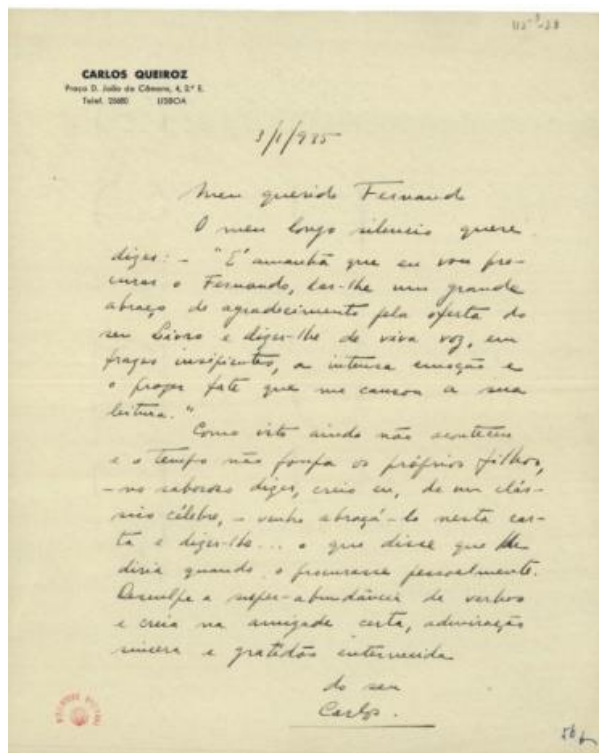 115³-28
CARLOS QUEIROZ
Praça D. João da Câmara, 4, 2.º E.
Telef. 26680 LISBOA
3/1/935
Meu querido Fernando
O meu longo silencio quere
dizer: - "É amanhã que eu vou pro-
curar o Fernando, dar-lhe um grande
abraço de agradecimento pela oferta do
seu Livro e dizer-lhe de viva voz, em
frases insipientes, a intensa emoção e
o prazer forte que me causou a sua
leitura."
Como isto ainda não aconteceu
e o tempo não poupa os próprios filhos,
- no saboroso dizer, creio eu, de um clás-
sico célebre, - venho abraçá-lo nesta car-
ta e dizer-lhe... o que disse que lhe
diria quando o procurasse pessoalmente.
Desculpe a super-abundância de verbos
e creia na amizade certa, admiração
sincera e gratidão enternecida
do seu
Carlos.